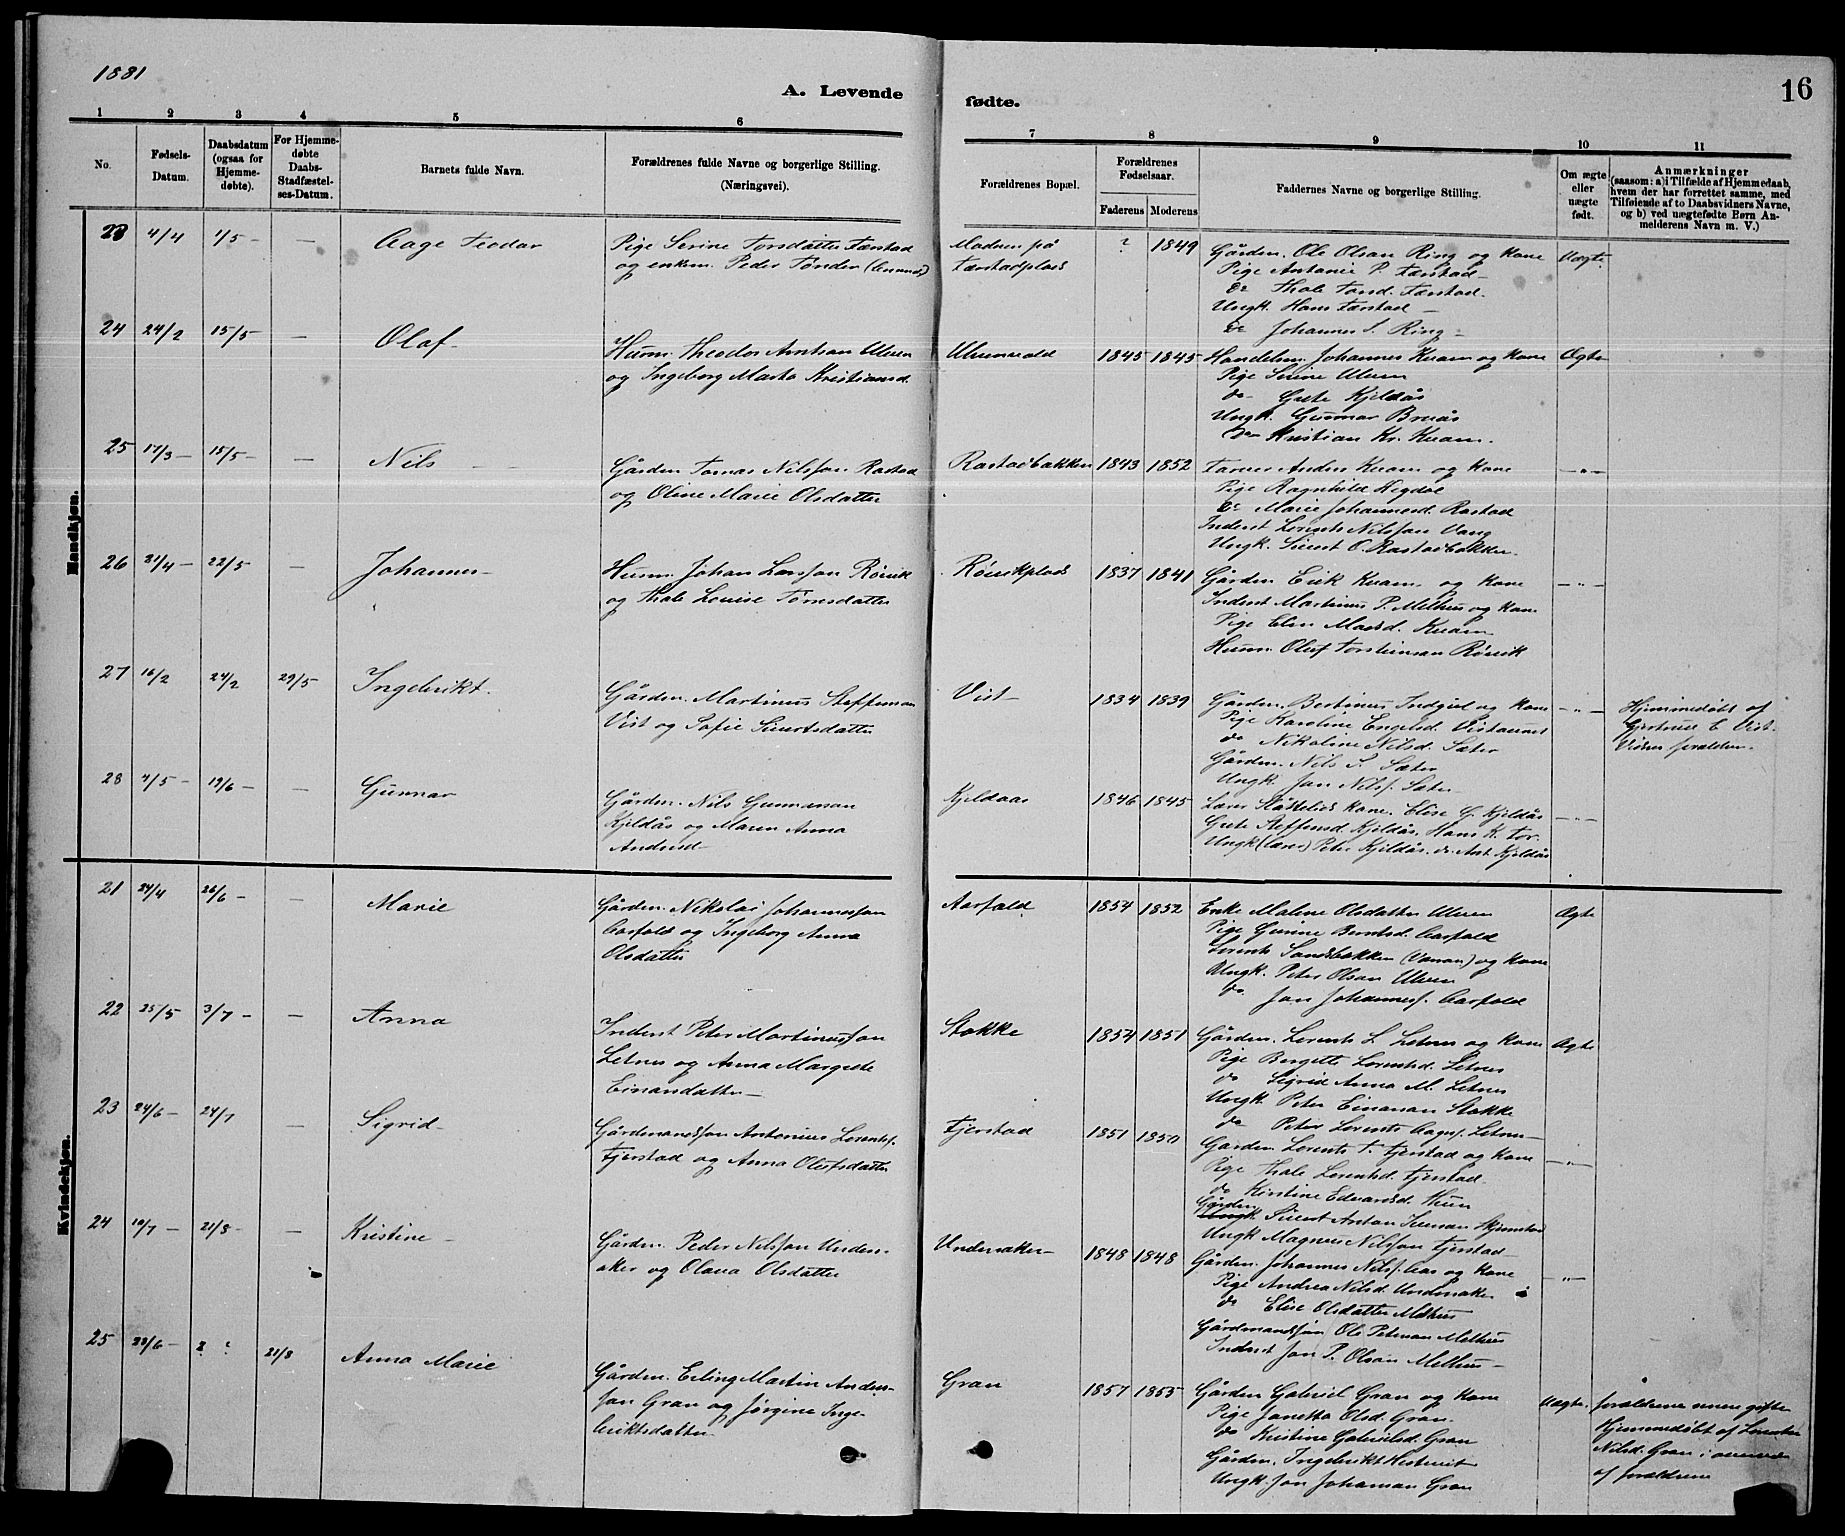 1881
A. Levende
fødte.
16
1 2 3 4 5 6 7 8 9 10 11
No.
Fødsels-
Datum.
Daabsdatum
(ogsaa for
Hjemme-
døbte).
For Hjemme-
døbte
Daabs-
Stadfæstel-
ses-Datum.
Barnets fulde Navn.
Forældrenes fulde Navne og borgerlige Stilling.
(Næringsvei).
Forældrenes Bopæl.
Forældrenes
Fødselsaar.
Faderens Moderens
Faddernes Navne og borgerlige Stilling.
Om ægte
eller
uægte
født.
Anmærkninger
(saasom: a) i Tilfælde af Hjemmedaab,
hvem der har forrettet samme, med
Tilføiende af to Daabsvidners Navne,
og b) ved uægtefødte Børn An-
melderens Navn m. V.)
Mandkjøn.
23 4/4 1/5 - — Aage Teodor
Pige Serine Torsdatter Færstad
og enkem. Peder Tønder
Moderen på
Færstadplads
? 1849
Gården. Ole Olsen Ring og kone
Pige Antonie P. Færstad -
do Thale Tord. Færstad.
Ungk. Hans Færstad -
do Johannes S. Ring -
Uægte
24 24/2 15/5 — Olaf
Husm. Theodor Arntsen Ulven
og Ingeborg Marta Kristiansd.
1845 1845
Handelsm. Johannes Kvam og kone
Pige Serine Ulven
do Grete Kjeldås
Ungk. Gunnar Bruås
do Kristian Kr. Kvam.
Ægte
25 17/3 - 15/5 - — Nils
Gården Tomas Nilssen Rastad
og Oline Marie Olsdatter
Rastadbakken 1843 1852
Anders Kvam og kone
Pige Ragnhild Hegdal
do Marie Johannesd. Rastad
Inderst Lorents Nilssen Vang
Ungk. Sivert O. Rastadbakken
— " —
26 21/4 - 22/5 — Johannes
Husm. Johan Larssen Røisik
og Thale Louise Tørrisdatter
Røisikplads 1837 1841
Gården Erik Kvam og kone
Inderst Martinus P. Melhus og kone
Pige Elen Madsd. Kvam
Husm. Oluf Torsteinsen Røisik
— " —
27 16/2 24/2 29/5 Ingebrikt.
Gården. Martinus Steffensen
Vist og Sofie Siversdatter
Vist 1834 1839
Gården. Bertinus Indgjed og kone
Pige Karoline Engelsd. Vistaunet
do Nikoline Nilsd. Sæter
Gården. Nils S. Sæter
Ungk. Jon Nilss. Sæter
— " —
Hjemmedøbt af
Gjertrud E Vist.
Vidner forældren.
28 4/5 - 19/6 - — Gunnar
Gården. Nils Gunnersen
Kjeldås og Maren Anna
Andersd
Kjeldaas 1846 1845
Lærer kone. Elise G. Kjeldås
Grete Steffensd. Kjeldås. Hans K. Tor.
Ungk (lærer) Peter Kjeldås. do Kjeldås
— " —
Kvindekjøn.
21 24/4 26/6 - — Marie
Gården. Nikolai Johannessen
Aarfald og Ingeborg Anna
Olsdatter
Aarfald 1854 1852
Enke Maline Olsdatter Ulven
Pige Gurine Berntsd. Aarfald
Lorents Sandsbakken og kone
Ungk. Peter Olsen Ulven
do Jon Johanness. Aarfald
Ægte
22 25/5 3/7 - — Anna
Inderst Peter Martinussen
Letnes og Anna Margrete
Einarsdatter —
Stokke 1854 1851
Gården. Lorents L Letnes og kone
Pige Bergitte Lorentsd. Letnes
do Sigrid Anna M. Letnes
Ungk. Peter Einarsen Stokke
do Peter Lorents Letnes
Ægte
23 24/6 - 24/7 — Sigrid
Gårdmandssøn Antonius Lorents.
Fjerstad og Anna Olufsdatter
Fjerstad 1851 1850
Gården Lorents T. Fjerstad og kone
Pige Thale Lorentsd. Fjerstad
do Kirstine Edvardsd. Hein
Gården Sivert Anton Skjerstad
Ungk Magnus Nilssen Fjerstad
— " —
24 10/7 - 21/8 - — Kristine
Gården. Peder Nilssen Undersaker
og Olava Olsdatter
Undersaker 1848 1848
Gården. Johannes Nilss. Aas og kone
Pige Andrea Nilsd. Undersaker
do Elise Olsdatter Melhus
Gårdmandssøn Ole Petersen Melhus
Inderst Jon P. Olsen Melhus
— " —
25 23/6 - ? ? 21/8 Anna Marie
Gården. Erling Martin Anders-
sen Gran og Jørgine Inge-
briktsdatter
Gran 1857 1855
Gården Gabriel Gran og kone
Pige Janetta Olsd. Gran.
do Kristine Gabrielsd. Gran
Gården. Ingebrikt
Ungk. Jon Johansen Gran
Uægte
forældrene senere gifte
Hjemmedøbt af
Nilsd. Gran i overvær
af forældrene